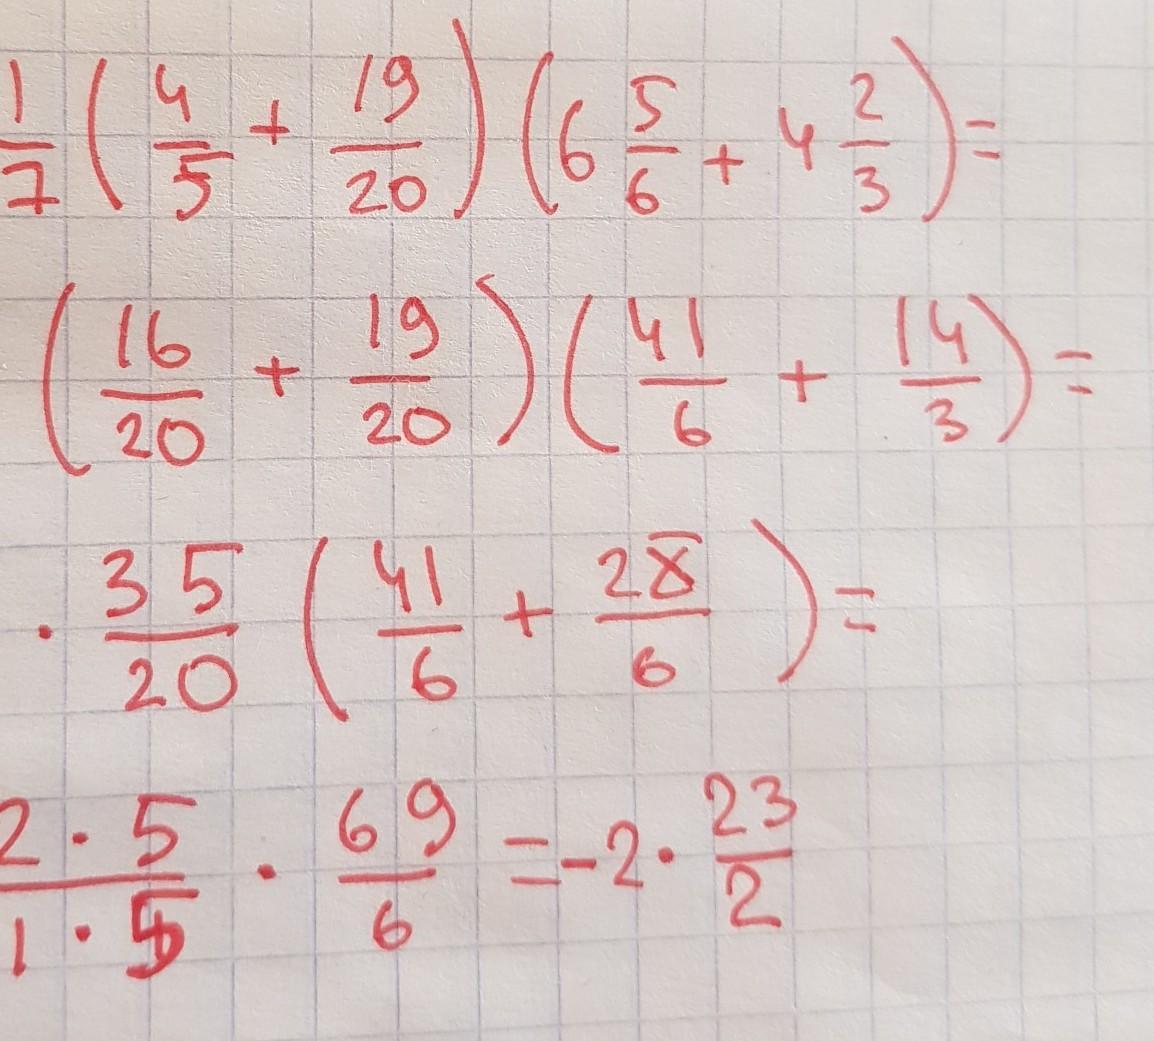 1/7 (4/5 + 19/20) (6 5/6 + 4 2/3) =
(16/20 + 19/20) (41/6 + 14/3) =
· 35/20 (41/6 + 28/6) =
2·5/1·5 · 69/6 = -2 · 23/2